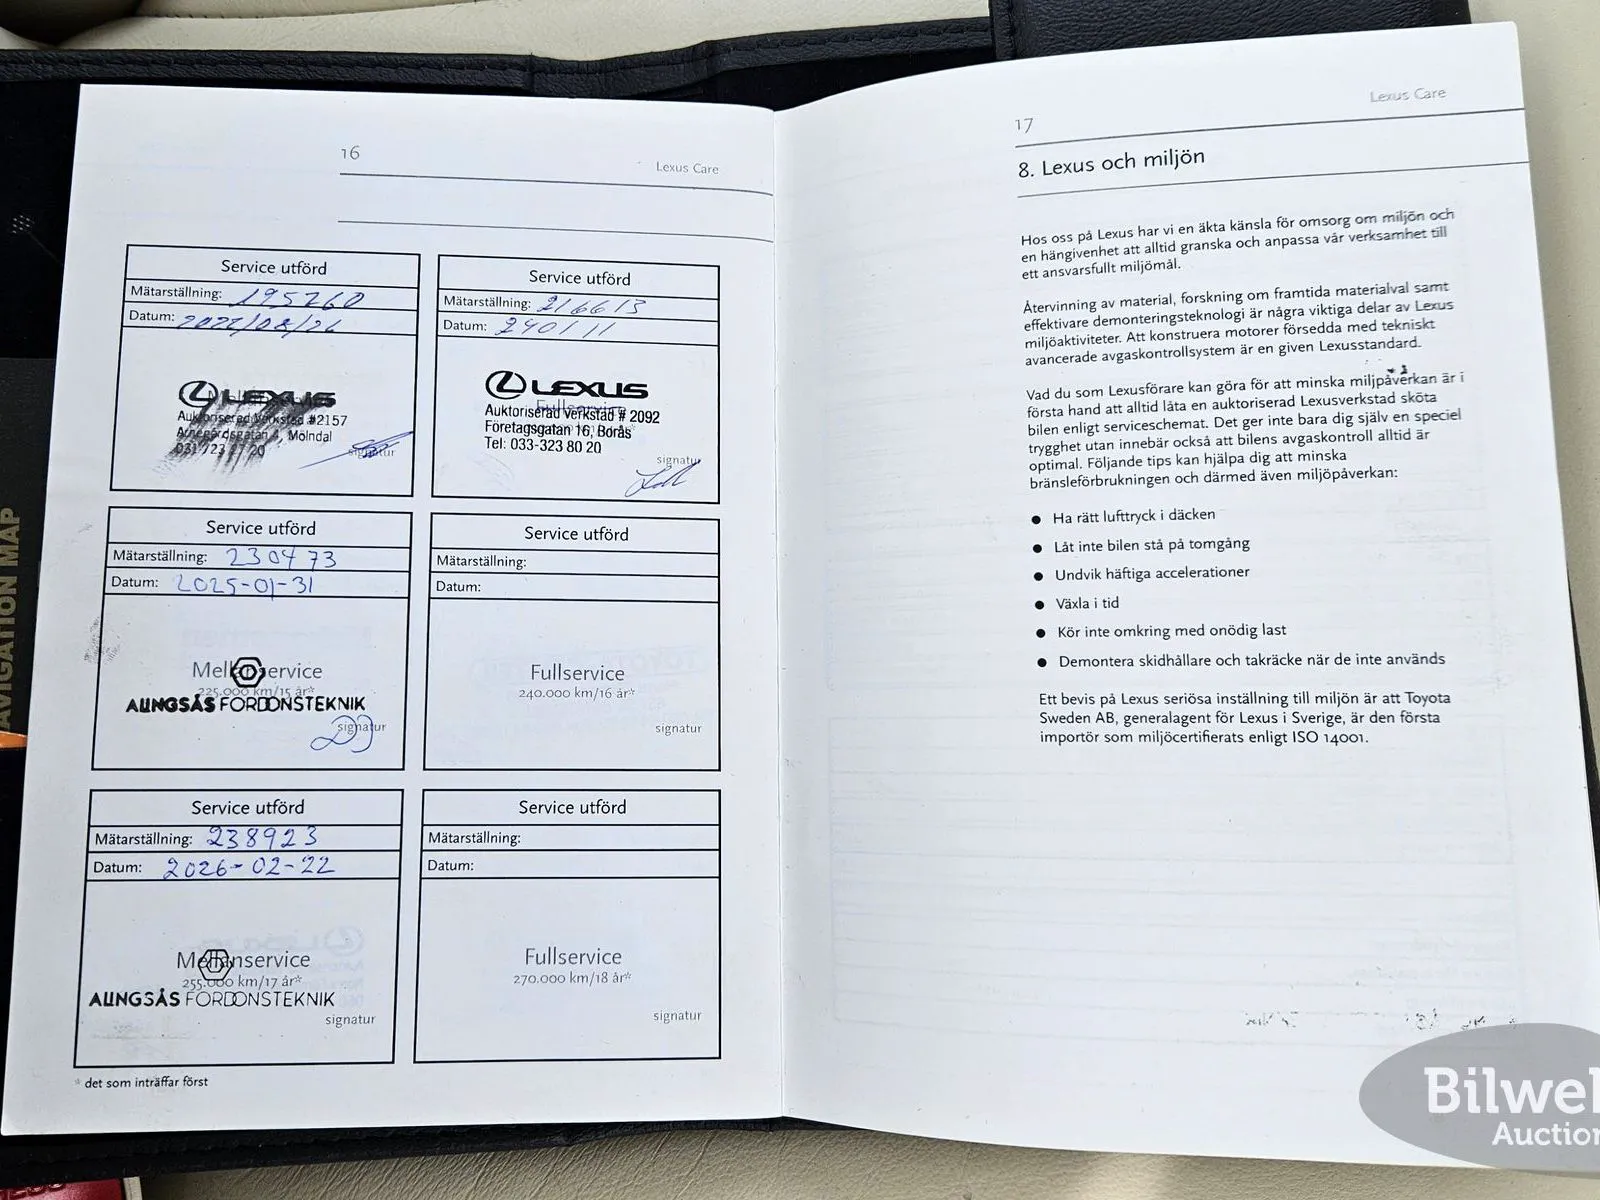 16
Lexus Care
Service utförd
Mätarställning: 195260
Datum: 2022/08/26
LEXUS
Auktoriserad Verkstad #2157
Mölndal
signatur
Service utförd
Mätarställning: 216613
Datum: 240111
LEXUS
Fullservice
Auktoriserad Verkstad # 2092
Företagsgatan 16, Borås
Tel: 033-323 80 20
signatur
Service utförd
Mätarställning: 230473
Datum: 2025-01-31
Mellanservice
225.000 km/15 år*
ALINGSÅS FORDONSTEKNIK
signatur
Service utförd
Mätarställning:
Datum:
Fullservice
240.000 km/16 år*
signatur
Service utförd
Mätarställning: 238923
Datum: 2026-02-22
Mellanservice
255.000 km/17 år*
ALINGSÅS FORDONSTEKNIK
signatur
Service utförd
Mätarställning:
Datum:
Fullservice
270.000 km/18 år*
signatur
* det som inträffar först
Lexus Care
17
8. Lexus och miljön
Hos oss på Lexus har vi en äkta känsla för omsorg om miljön och
en hängivenhet att alltid granska och anpassa vår verksamhet till
ett ansvarsfullt miljömål.
Återvinning av material, forskning om framtida materialval samt
effektivare demonteringsteknologi är några viktiga delar av Lexus
miljöaktiviteter. Att konstruera motorer försedda med tekniskt
avancerade avgaskontrollsystem är en given Lexusstandard.
Vad du som Lexusförare kan göra för att minska miljpåverkan är i
första hand att alltid låta en auktoriserad Lexusverkstad sköta
bilen enligt serviceschemat. Det ger inte bara dig själv en speciel
trygghet utan innebär också att bilens avgaskontroll alltid är
optimal. Följande tips kan hjälpa dig att minska
bränsleförbrukningen och därmed även miljöpåverkan:
● Ha rätt lufttryck i däcken
● Låt inte bilen stå på tomgång
● Undvik häftiga accelerationer
● Växla i tid
● Kör inte omkring med onödig last
● Demontera skidhållare och takräcke när de inte används
Ett bevis på Lexus seriösa inställning till miljön är att Toyota
Sweden AB, generalagent för Lexus i Sverige, är den första
importör som miljöcertifierats enligt ISO 14001.
AVIGATION MAP
Bilwel
Auction